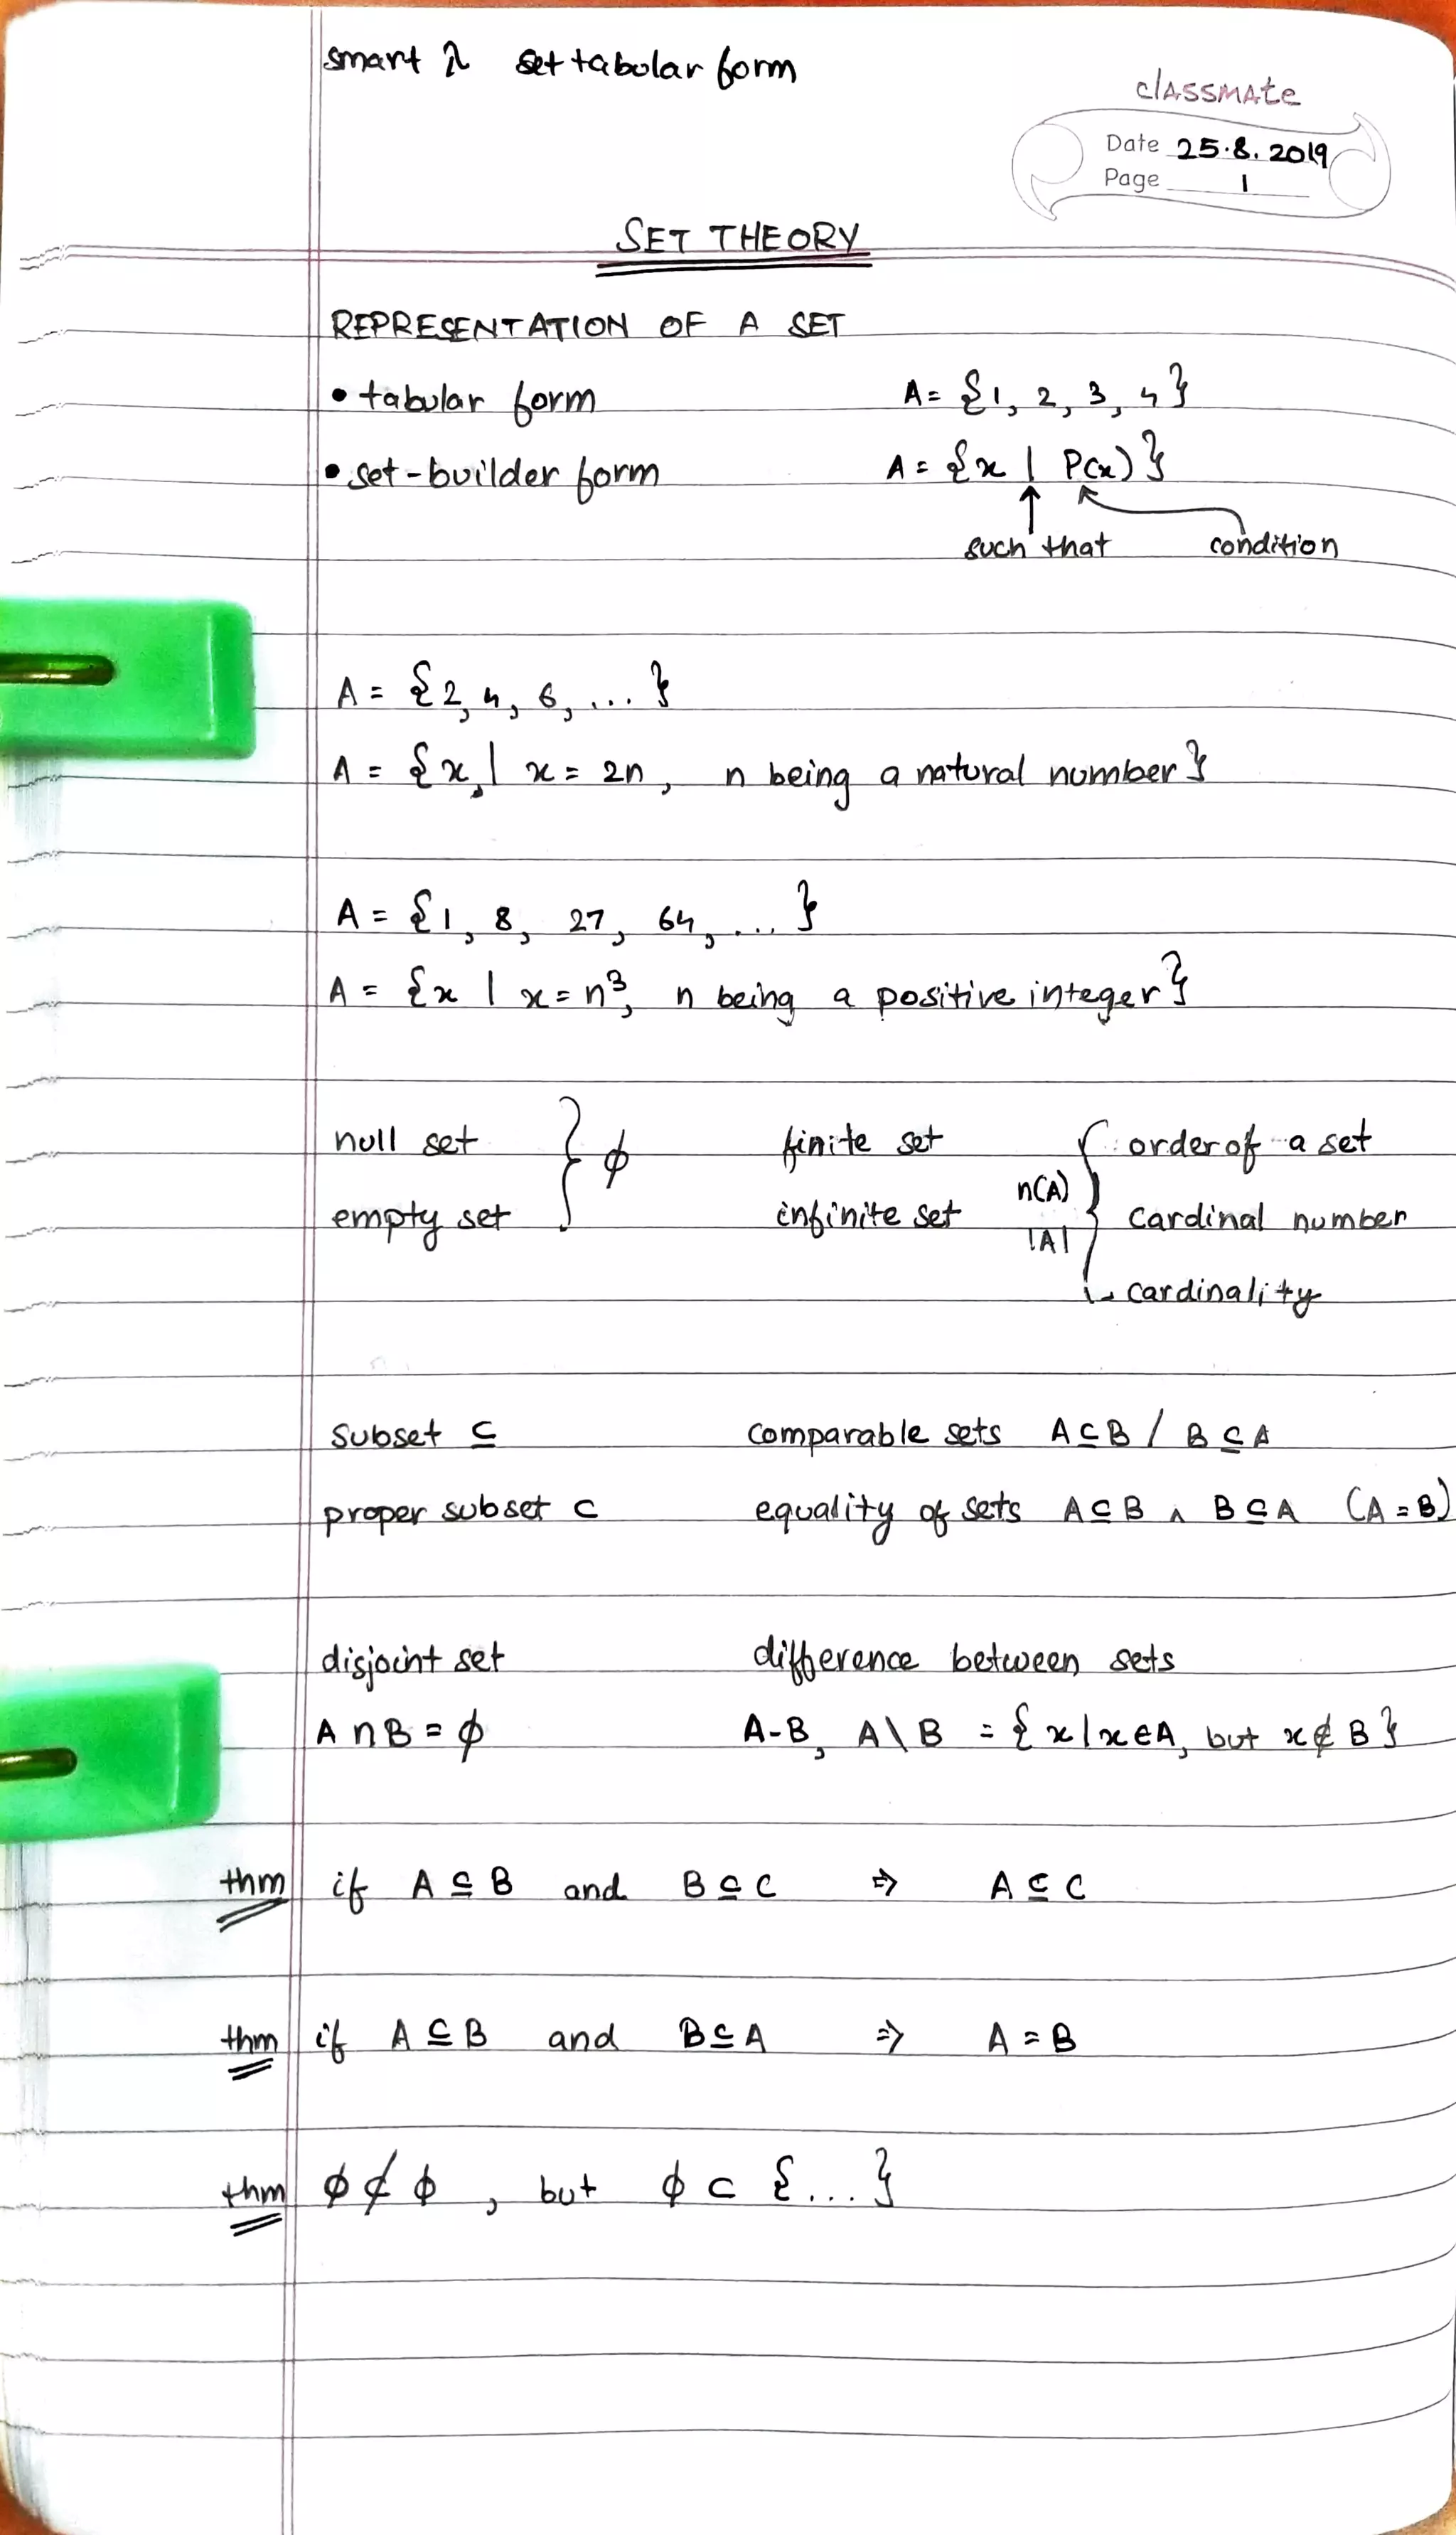 smart set tabular form
classmate
Date 25.8.2019
Page 1
SET THEORY
REPRESENTATION OF A SET
• tabular form A = {1, 2, 3, 4}
• set-builder form A = {x | P(x)}
such that condition
A = {2, 4, 6, ... }
A = {x | x = 2n, n being a natural number}
A = {1, 8, 27, 64, ... }
A = {x | x = n³, n being a positive integer}
null set } ϕ finite set { order of a set
n(A)
empty set infinite set cardinal number
|A|
cardinality
subset ⊆ comparable sets A ⊆ B / B ⊆ A
proper subset ⊂ equality of sets A ⊆ B ∧ B ⊆ A (A = B)
disjoint set difference between sets
A ∩ B = ϕ A-B, A \ B = { x | x ∈ A, but x ∉ B }
thm if A ⊆ B and B ⊆ C ⇒ A ⊆ C
thm if A ⊆ B and B ⊆ A ⇒ A = B
thm ϕ ⊄ ϕ , but ϕ ⊂ {...}